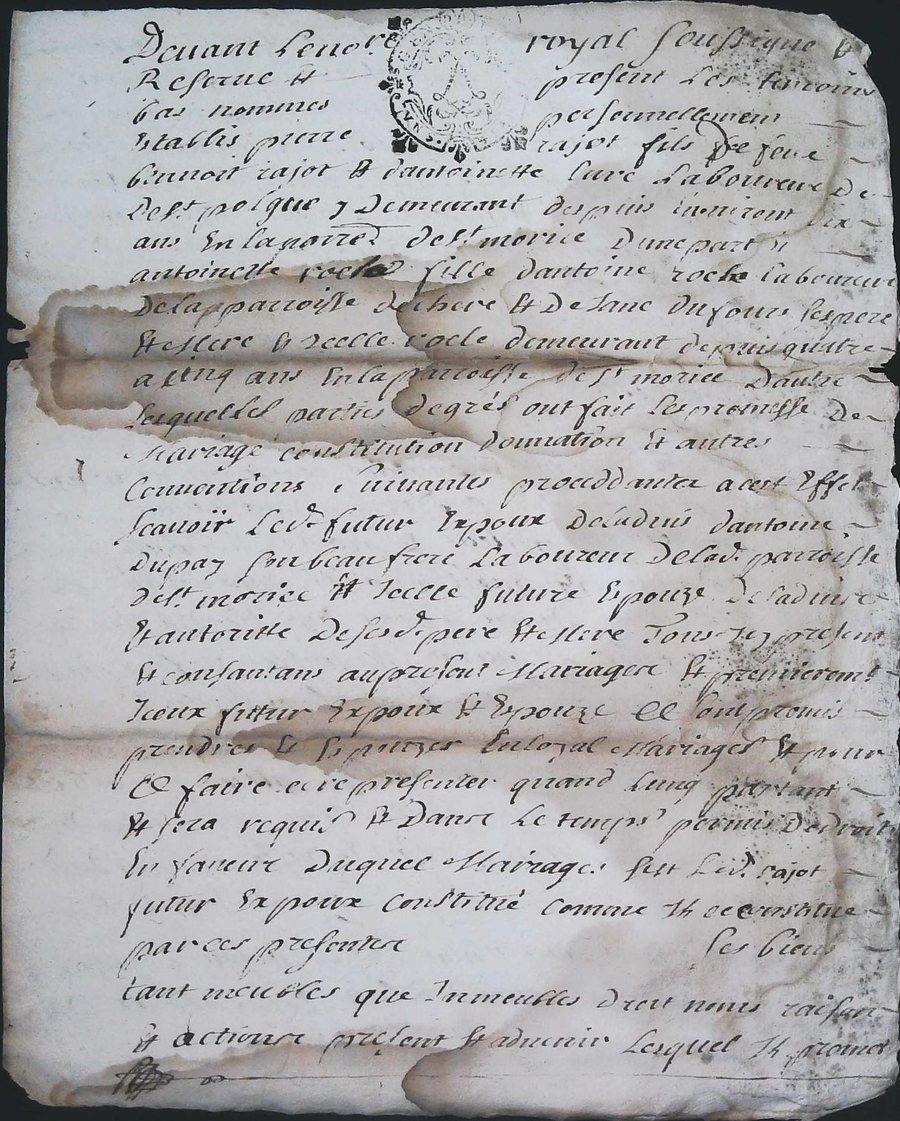 Devant Le not royal soussigne &
Reserve et present Les temoins
bas nommes personnellement
Establis pierre rajot fils de feu
benoit rajot et dantoinette Cure Laboureur De
De st polgue y Demeurant despuis environt dix
ans En la parre De st morice Dune part y
antoinette roche fille dantoine roche laboureur
De la parroisse de chere et De Jane Dufour les pere
Et Mere y Icelle roche demeurant depuis quatre
a cinq ans En la parroisse De st morice Dautre
Lesquelles parties de grés ont fait Les promesse De
Mariage constitution donnation Et autres
Conventions Suivantes proceddantes a cest Effet
Scavoir Led. futur Expoux De ladvis dantoine
Dupay son beau frere Laboureur De lad. parroisse
De st morice et Icelle future Epouze De ladvis
Et autoritte De sesd. pere Et Mere Tous Icy present
Et consantans au present Mariage Et premierement
Iceux futur Expoux Et Epouze ont promis
prendre Et Espouzer En loyal Mariages Et pour
Ce faire ce representer quand lung partant
Et sera requis Et Dans Le temps permis De Droit
En faveur Duquel Mariage sest Led. rajot
futur Expoux Constitué comme Il ce constitue
par ces presentes Les biens
tant meubles que Inmeubles Droit noms raisons
Et actions present Et advenir Lesquel Il promet